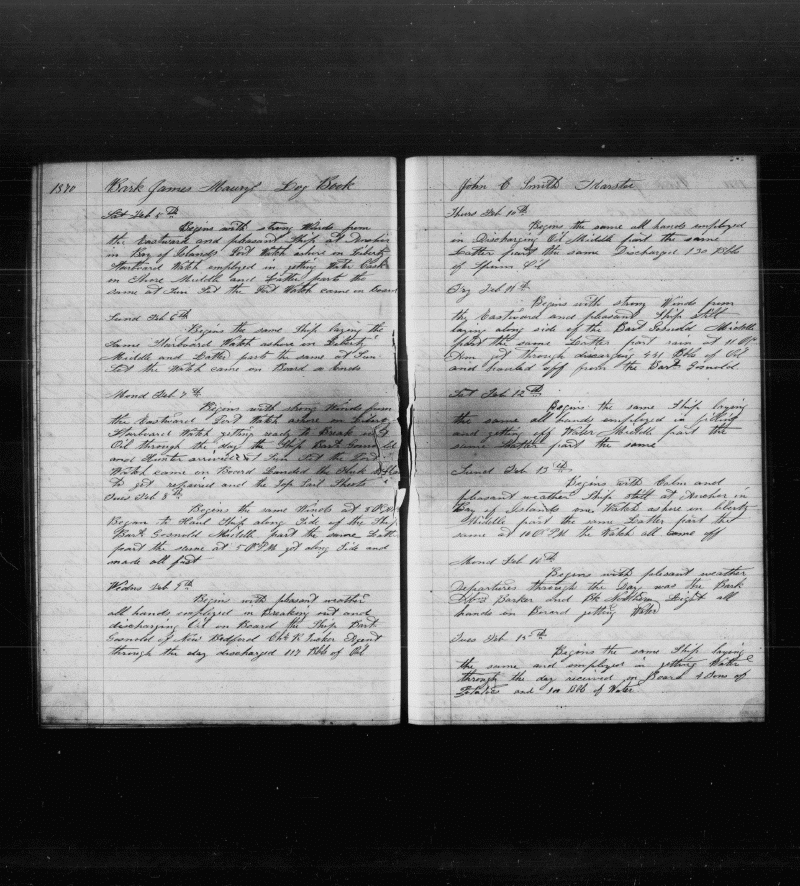 1870 Bark James Maury Log Book
Sat Feb 5th
Begins with strong Winds from
the Eastward and pleasant Ship at Anchor
in Bay of Islands Port Watch ashore on Liberty
Starboard Watch employed in getting Water Cask
on Shore Middle and Latter parts the
same at Sun Set the Port Watch came on Board
Sund Feb 6th
Begins the same Ship laying the
same Starboard Watch ashore on Liberty
Middle and Latter parts the same at Sun
Set the Watch came on Board
Mond Feb 7th
Begins with strong Winds from
the Eastward Port Watch ashore on Liberty
Starboard Watch getting ready to Break out
Oil through the day the Ship Bart Gosnold
and Hunter arrived at Sun Set the Port
Watch came on Board Landed the
to get repaired and the Top Sail Sheets
Tues Feb 8th
Begins the same Winds at 3 P.M.
Began to Haul Ship along Side of the Ship
Bart Gosnold Middle part the same Latter
part the same at 5 P.M. got along Side and
made all fast
Wednes Feb 9th
Begins with pleasant weather
all hands employed in Breaking out and
discharging Oil on Board the Ship Bart
Gosnold of New Bedford Chs R Tucker Agent
through the day discharged 117 Bbls of Oil
John C Smith Master
Thurs Feb 10th
Begins the same all hands employed
in Discharging Oil Middle part the same
Latter part the same Discharged 130 Bbls
of Sperm Oil
Fry Feb 11th
Begins with strong Winds from
the Eastward and pleasant Ship still
laying along side of the Bart Gosnold Middle
part the same Latter part rain at 11
got through discharging 431 Bbls of Oil
and hauled off from the Bart Gosnold
Sat Feb 12th
Begins the same Ship laying
the same all hands employed in
and getting Water Middle part the
same Latter part the same
Sund Feb 13th
Begins with Calm and
pleasant weather Ship still at Anchor in
Bay of Islands one Watch ashore on Liberty
Middle part the same Latter part the
same at 10 P.M the Watch all came off
Mond Feb 14th
Begins with pleasant weather
Departures through the Day was the Bark
Barker and Bk Northern Light all
hands on Board getting Water
Tues Feb 15th
Begins the same Ship laying
the same and employed in getting Water
through the day received on Board 4 Tons of
Potatoes and 100 Bbls of Water